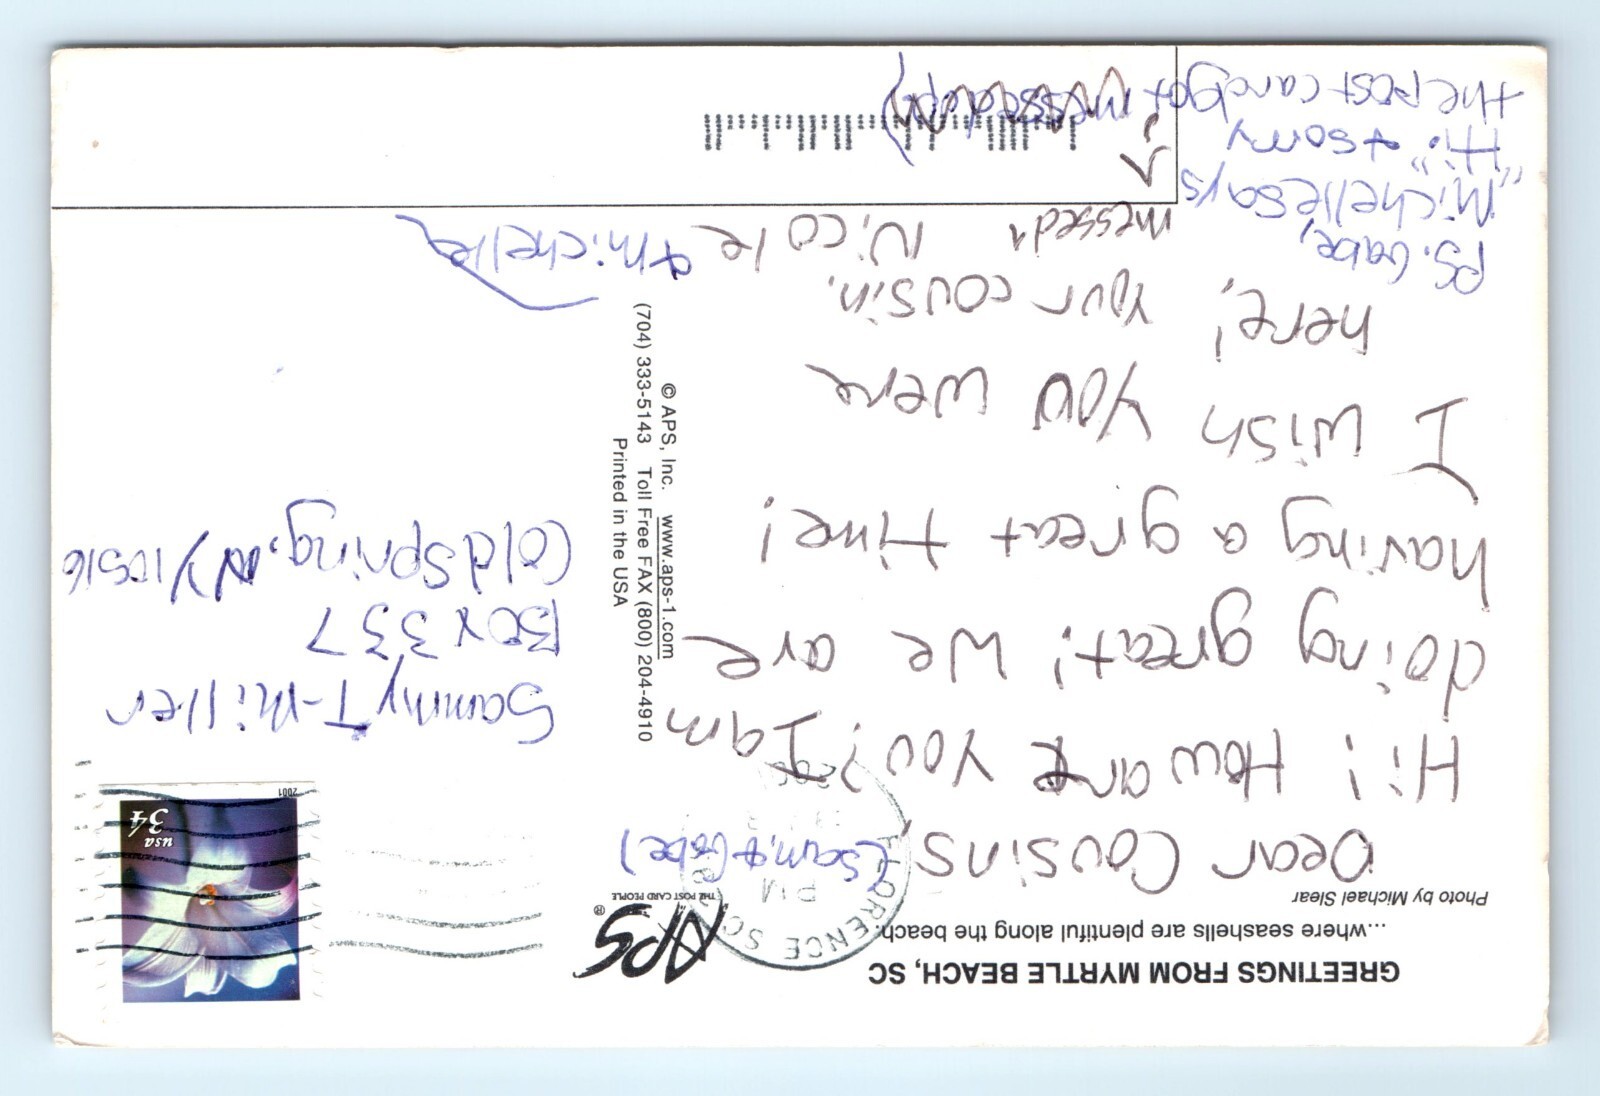 GREETINGS FROM MYRTLE BEACH, SC
...where seashells are plentiful along the beach.
Photo by Michael Slear
Dear Cousins, (Sam, & Gabe)
Hi! How are you? I am
doing great! We are
having a great time!
I wish you were
here! Your cousin,
messed Nicole
& Michelle
P.S. Gabe,
"Michelle says
Hi." & sorry
the post card got messed up)
APS ®
THE POST CARD PEOPLE
FLORENCE SC
PM
© APS, Inc. www.aps-1.com
(704) 333-5143 Toll Free FAX (800) 204-4910
Printed in the USA
usa
34
2001
Sammy T-Miller
Box 337
Cold Spring, NY 10516